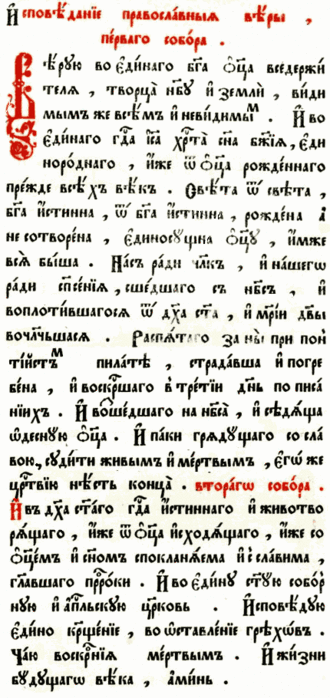 И҆сповѣ́данїе правосла́вныѧ вѣ́ры ,
пе́рваго собо́ра .
Вѣ́рую во є҆ди́наго бг҃а ѻ҆ц҃а̀ вседержи
телѧ , творца̀ нб҃у и҆ землѝ , ви́ди
мымъ же всѣ̑мъ и҆ неви́димымъ . И҆ во
є҆ди́наго гд҇а і҆с҃а хр҇та̀ сн҃а бж҃їѧ , є҆ди
норо́днаго , и҆́же ѿ ѻ҆ц҃а̀ рожде́ннаго
пре́жде всѣ́хъ вѣ́къ . Ѻвѣ́та ѿ свѣ́та ,
бг҃а и҆́стинна , ѿ бг҃а и҆́стинна , рожде́на а҆
не сотворе́на , є҆диносу́щна ѻ҆ц҃у̀ , и҆́мже
всѧ̑ бы́ша . На́съ ра́ди чл҃къ , и҆ на́шегѡ
ра́ди сп҇се́нїѧ , сше́дшаго съ нб҇съ , и҆
воплоти́вшагосѧ ѿ дх҃а ст҃а , и҆ мр҃і́и дв҃ы
вочл҃чьшасѧ . Распѧ́таго за ны̀ при пон
ті́йстѣмъ пила́тѣ , страда́вша и҆ погре
бе́на , и҆ воскр҇шаго в̾ тре́тїи дн҃ь по писа́
нїихъ . И҆ воше́дшаго на нб҇са̀ , и҆ сѣдѧ́ща
ѡ҆десну́ю ѻ҆ц҃а̀ . И҆ па́ки грѧду́щаго со сла́
вою , суди́ти живы́мъ и҆ ме́ртвымъ , є҆гѡ́ же
ца҇р́твїю нѣ́сть конца̀ . втора́гѡ собо́ра .
И҆ въ дх҃а ст҃а́го гд҇а и҆́стиннаго и҆ животво
рѧ́щаго , и҆́же ѿ ѻ҆ц҃а̀ и҆сходѧ́щаго , и҆́же со
ѻ҆ц҃е́мъ и҆ сн҃омъ спокланѧ́ема и҆ ссла́вима ,
гл҃авшаго прр҇о́ки . И҆ во є҆ди́ну ст҃ую собо́р
ную и҆ а҆п҇льскую цр҃ковь . И҆сповѣ́дую
є҆ди́но кр҃ще́нїе , во ѡ҆ставле́нїе грѣхо́въ .
Ча́ю воскр҇нїѧ ме́ртвымъ . И҆ жи́зни
бу́дущагѡ вѣ́ка , а҆ми́нь .